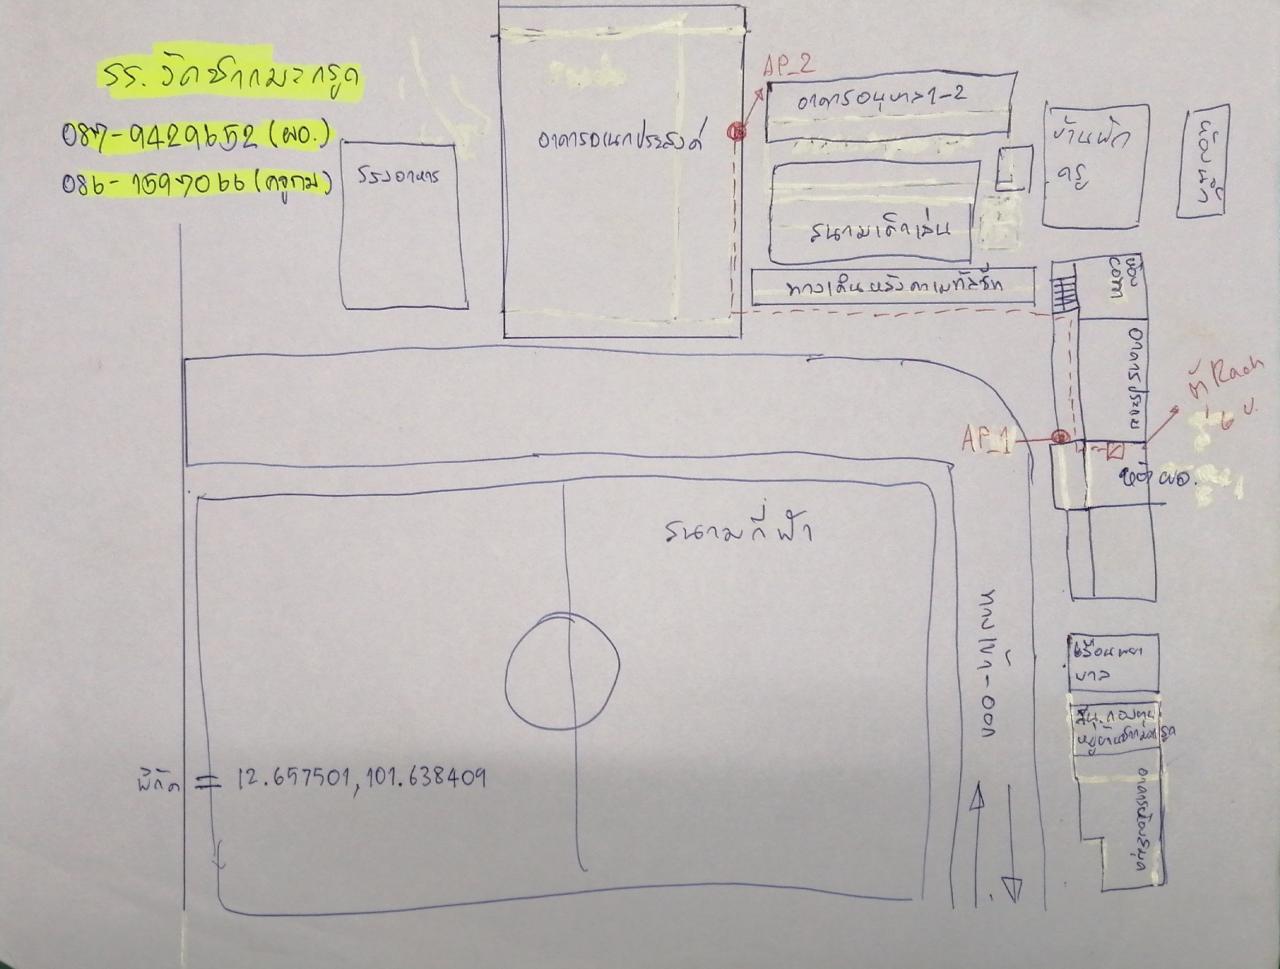 รร. วัดชากมะกรูด
087-9429652 (ผอ.)
086-1597066 (ครูกม)
โรงอาหาร
อาคารอเนกประสงค์
AP_2
อาคารอนุบาล 1-2
สนามเด็กเล่น
ทางเดินหลังคาเมทัลชีท
บ้านพัก
ครู
ห้องน้ำ
ห้อง
com
อาคารประถม
ตู้ Rack
6 U.
AP_1
ห้อง ผอ.
สนามกีฬา
ทางเข้า-ออก
เรือนพยา
บาล
อาคารห้องสมุด
พิกัด = 12.657501, 101.638409